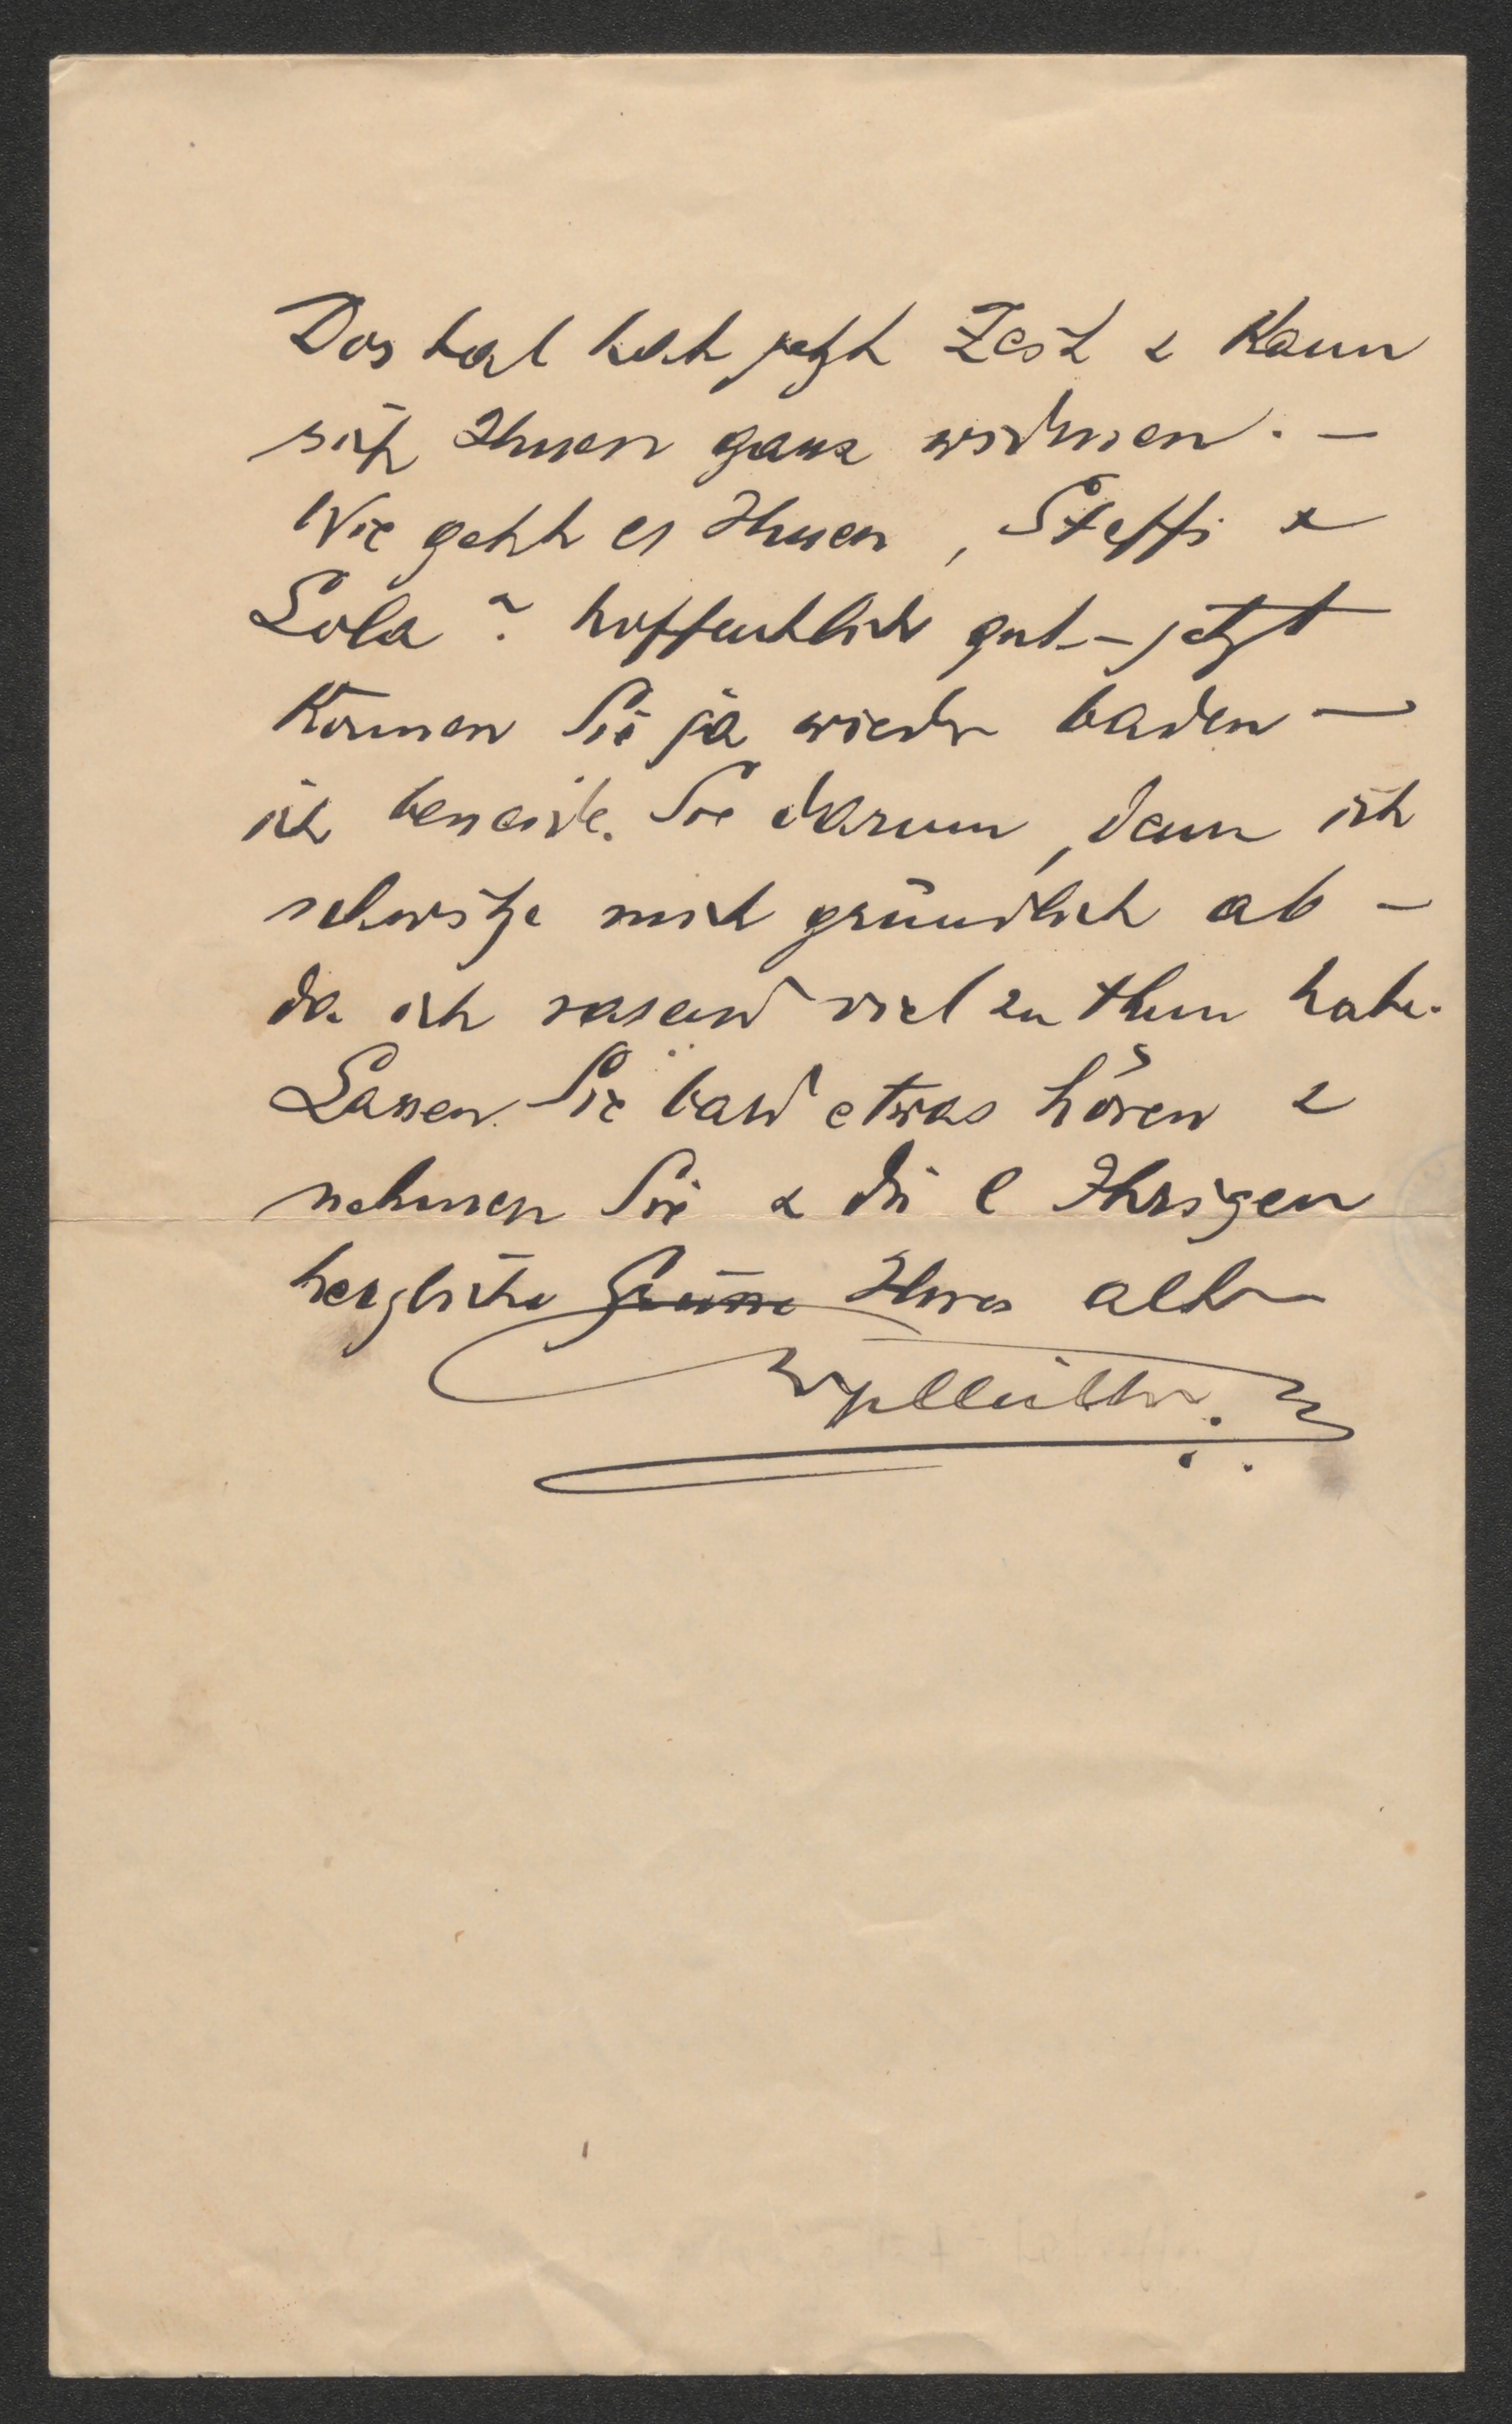 Dostal hat jetzt Zeit & kann
sich Ihnen ganz widmen. —
Wie geht es Ihnen, Steffi &
Lola? hoffentlich gut – jetzt
können Sie ja wieder baden —
ich beneide Sie darum, denn ich
schwitze mich gründlich ab –
da ich rasend viel zu thun habe.
Lassen Sie bald etwas hören &
nehmen Sie & die l Ihrigen
herzliche Grüsse Ihres alten